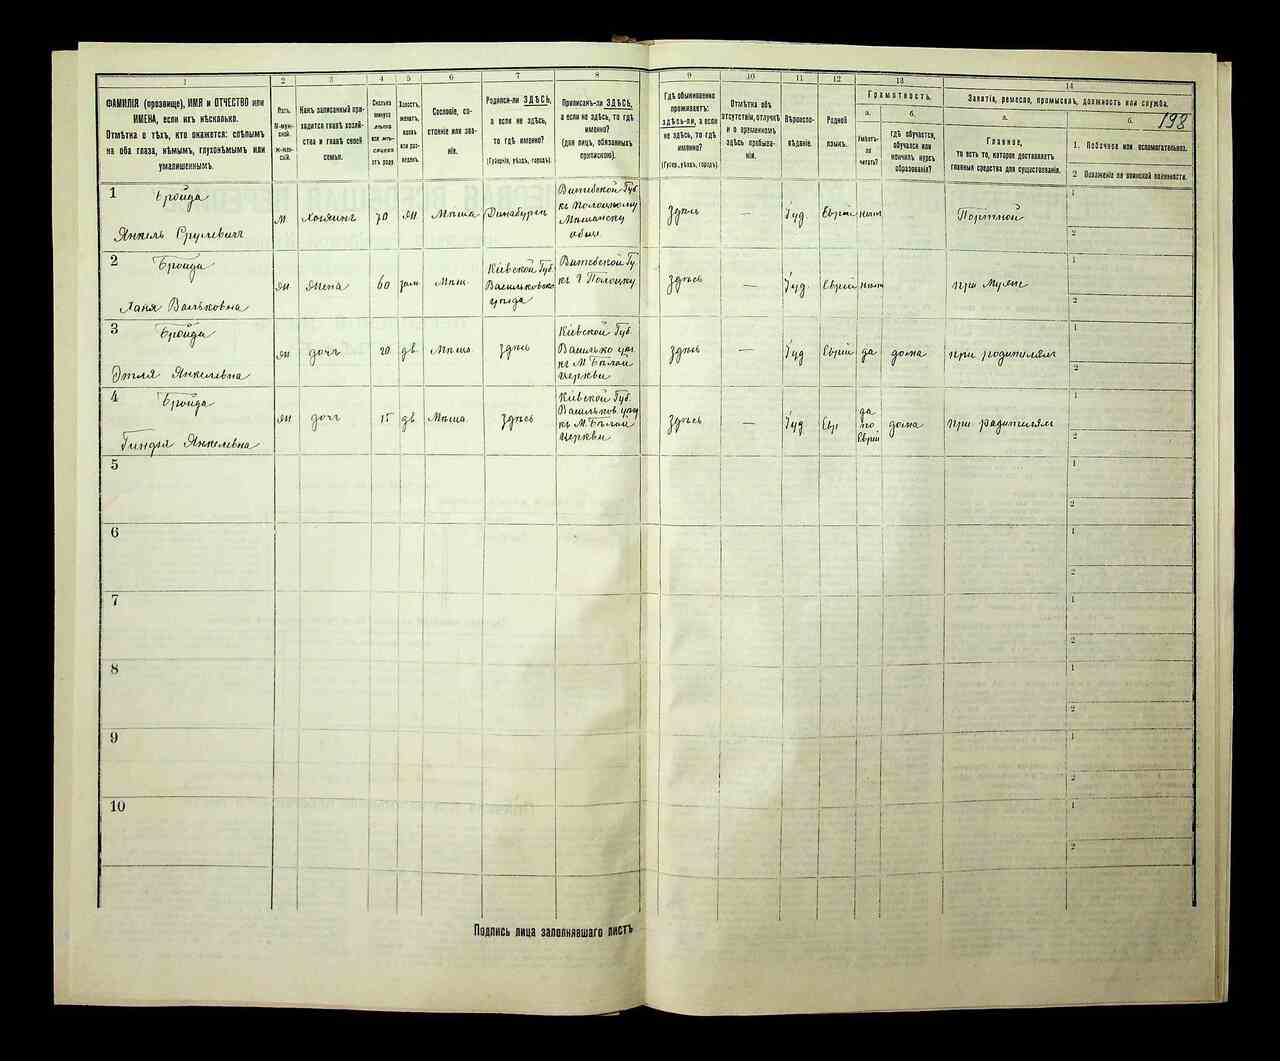 198
1
2
3
4
5
6
7
8
9
10
11
12
13
14
ФАМИЛІЯ (прозвище), ИМЯ и ОТЧЕСТВО или
ИМЕНА, если ихъ нѣсколько.
Отмѣтка о тѣхъ, кто окажется: слѣпымъ
на оба глаза, нѣмымъ, глухонѣмымъ или
умалишеннымъ.
Полъ.
М-муж-
ской.
Ж-жен-
скій.
Какъ записанный при-
ходится главѣ хозяй-
ства и главѣ своей
семьи.
Сколько
минуло
лѣтъ
или мѣ-
сяцевъ
отъ роду.
Холостъ,
женатъ,
вдовъ
или раз-
веденъ.
Сословіе, со-
стояніе или зва-
ніе.
Родился-ли ЗДѢСЬ,
а если не здѣсь,
то гдѣ именно?
(Губернія, уѣздъ, городъ).
Приписанъ-ли ЗДѢСЬ,
а если не здѣсь, то гдѣ
именно?
(для лицъ, обязанныхъ
припискою).
Гдѣ обыкновенно
проживаетъ:
здѣсь-ли, а если
не здѣсь, то гдѣ
именно?
(Губер., уѣздъ, городъ).
Отмѣтка объ
отсутствіи, отлучкѣ
и о временномъ
здѣсь пребыва-
ніи.
Вѣроиспо-
вѣданіе.
Родной
языкъ.
Грамотность.
а.
Умѣетъ-
ли
читать?
б.
гдѣ обучается,
обучался или
кончилъ курсъ
образованія?
Занятіе, ремесло, промыселъ, должность или служба.
а.
Главное,
то есть то, которое доставляетъ
главныя средства для существованія.
б.
1. Побочное или вспомогательное.
2 Положеніе по воинской повинности.
1
Бройда
Янкель Срулевичъ
м
хозяинъ
70
жн
Мѣща
Динабургъ
Витебской Губ
къ Полоцкому
Мѣщанску
общ
здѣсь
—
Іуд.
Еврей
нѣтъ
Портной
1
2
2
Бройда
Ханя Вольковна
ж
жена
60
зам
Мѣщ
Кіевской Губ
Васильковско
уѣзда
Витебской Гу
къ г Полоцку
здѣсь
—
Іуд.
Еврей
нѣтъ
при мужѣ
1
2
3
Бройда
Этля Янкелевна
ж
дочь
20
дѣ
Мѣща
здѣсь
Кіевской Губ.
Василько уѣз
къ М Бѣлой
Церкви
здѣсь
—
Іуд
Еврей
да
дома
при родителях
1
2
4
Бройда
Гиндля Янкелевна
ж
дочь
15
дѣ
Мѣща
здѣсь
Кіевской Губ
Васильков уѣз
къ М. Бѣлой
Церкви
здѣсь
—
Іуд
Евр
да
по
Еврей
дома
при родителях
1
2
5
1
2
6
1
2
7
1
2
8
1
2
9
1
2
10
1
2
Подпись лица заполнявшаго листъ